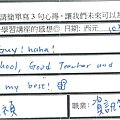 請簡單寫3句心得，讓我們未來可以
學習講座的感想 日期：西元
guy! haha!
hool, Good Teacher and
my best!
職業：資訊